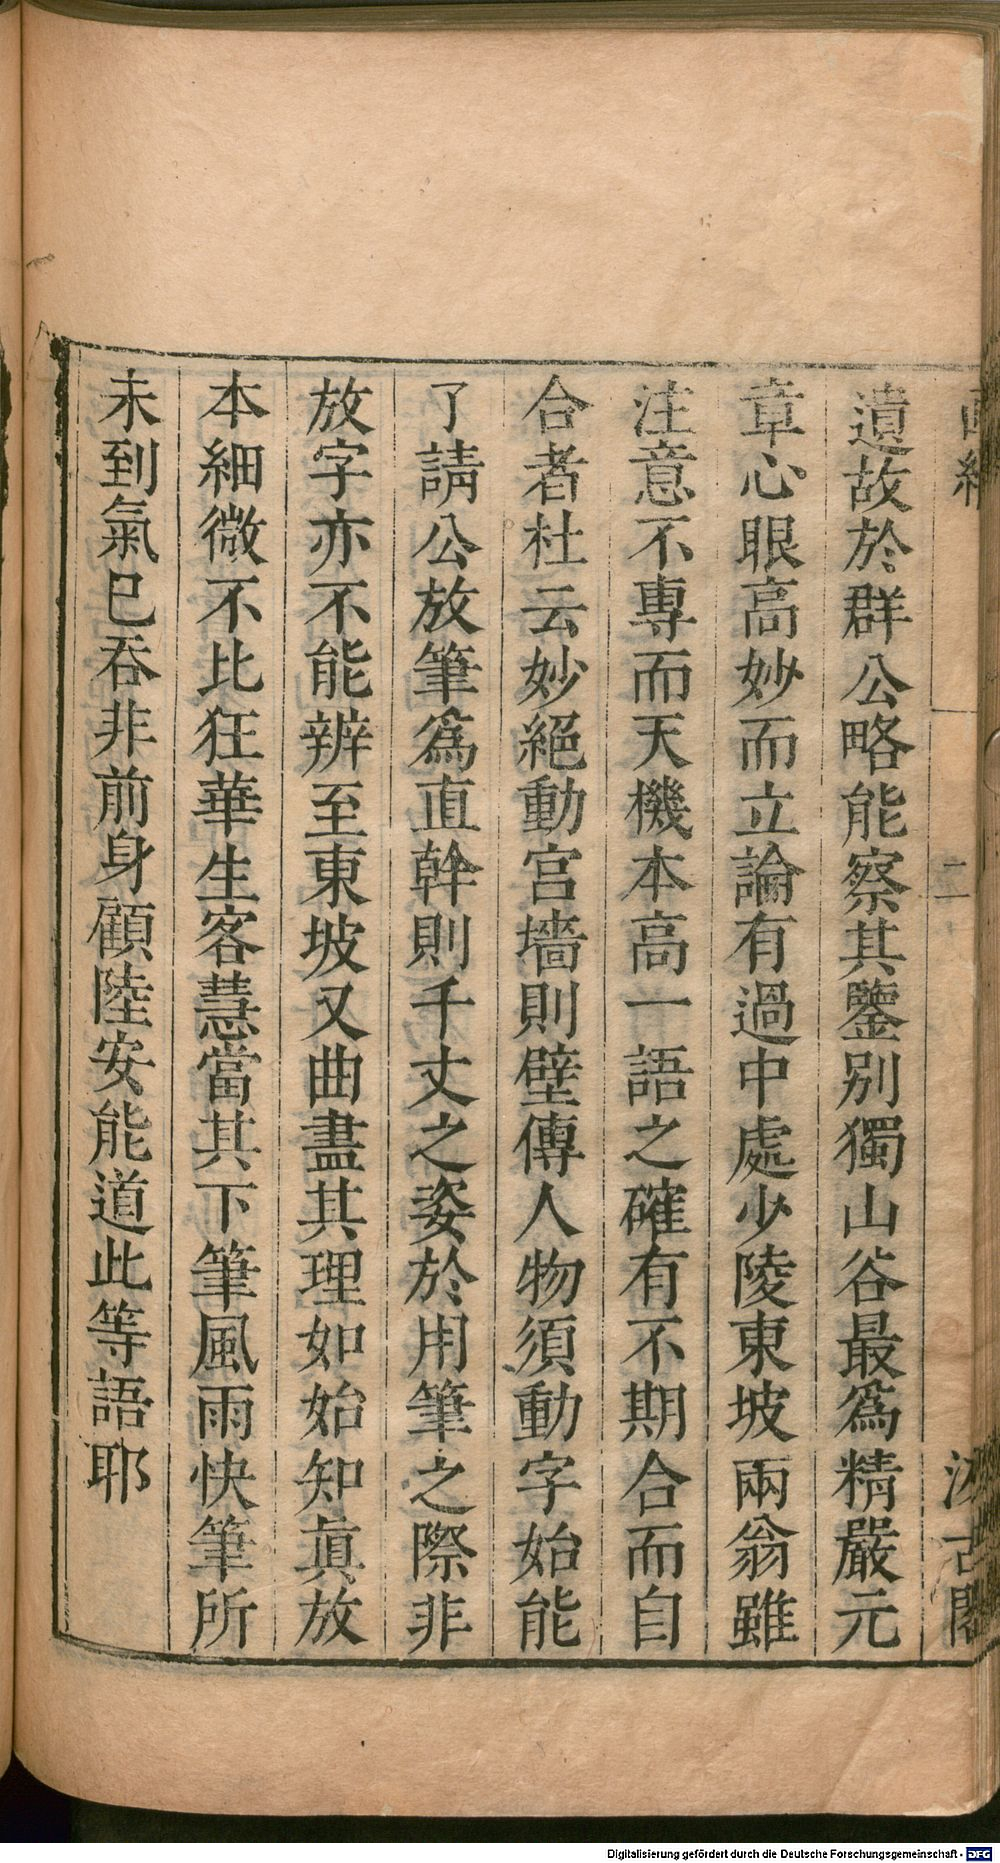 畫繼
二
汲古閣
遺故於群公略能察其鑒別獨山谷最爲精嚴元
章心眼高妙而立論有過中處少陵東坡兩翁雖
注意不專而天機本高一語之確有不期合而自
合者杜云妙絕動宮墻則壁傳人物須動字始能
了請公放筆爲直幹則千丈之姿於用筆之際非
放字亦不能辨至東坡又曲盡其理如始知眞放
本細微不比狂華生客慧當其下筆風雨快筆所
未到氣已吞非前身顧陸安能道此等語耶
Digitalisierung gefördert durch die Deutsche Forschungsgemeinschaft - DFG